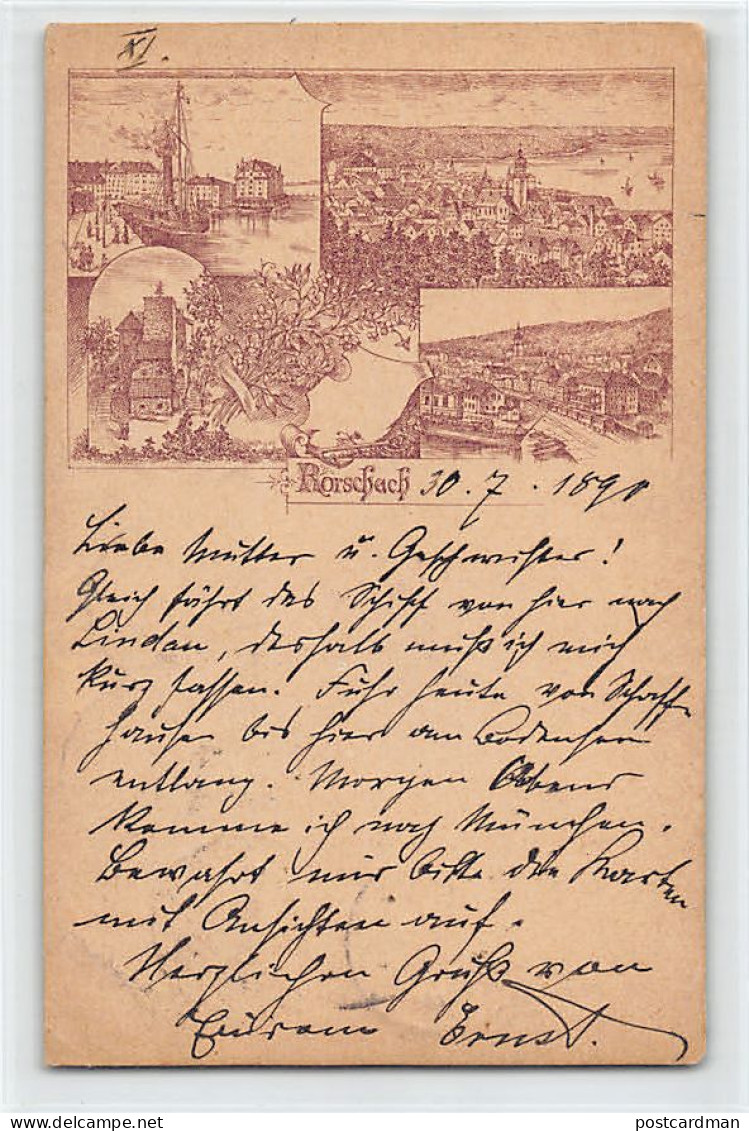 XI.
Rorschach 30. 7. 1890
Liebe Mutter u. Geschwister!
Gleich fährt das Schiff von hier nach
Lindau, deshalb muß ich mich
kurz fassen. Fuhr heute von Schaff-
hausen bis hier am Bodensee
entlang. Morgen Abend
komme ich nach München.
Bewahrt mir bitte die Karten
mit Ansichten auf.
Herzlichen Gruß von
Eurem Ernst.
postcardman